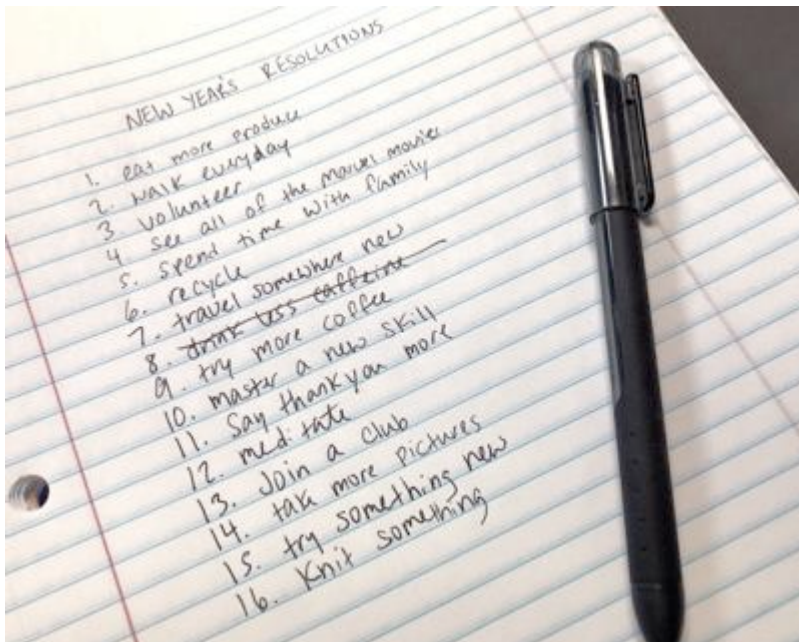 NEW YEAR'S RESOLUTIONS
1. eat more produce
2. walk everyday
3 volunteer
4 see all of the marvel movies
5. spend time with family
6. recycle
7. travel somewhere new
8. drink less caffeine
9. try more coffee
10. master a new skill
11. Say thank you more
12. meditate
13. Join a club
14. take more pictures
15. try something new
16. Knit something